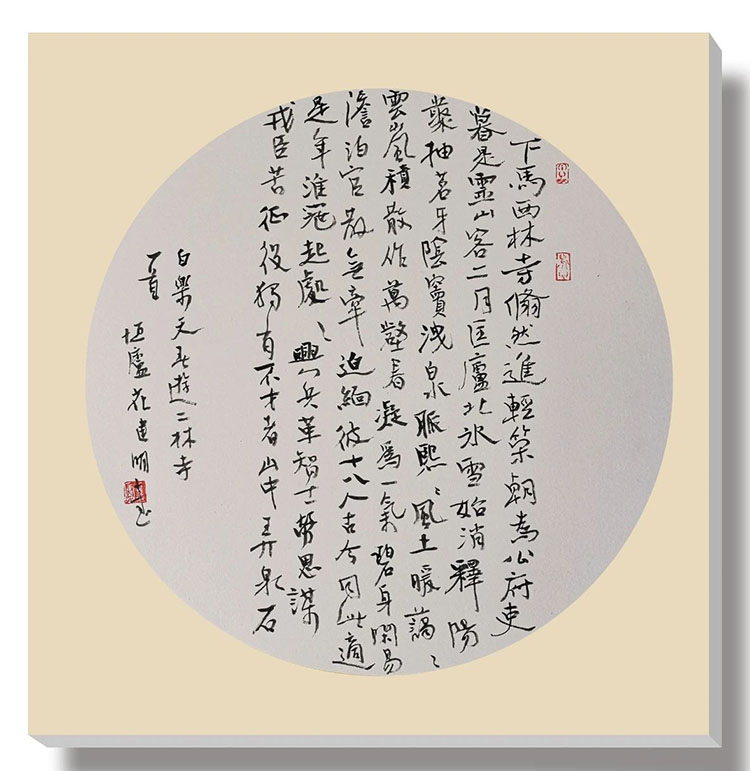 下馬西林寺翛然進輕策朝為公府吏
暮是靈山客二月匡廬北冰雪始消釋陽
叢抽茗牙陰竇洩泉脈熙〻風土暖藹〻
雲嵐積散作萬壑春凝為一氣碧身閑易
澹泊官散無牽迫緬彼十八人古今同此適
是年淮寇起處〻興兵革智士勞思謀
戎臣苦征役獨有不才者山中弄泉石
白樂天春遊二林寺
一首 恒廬花建明書